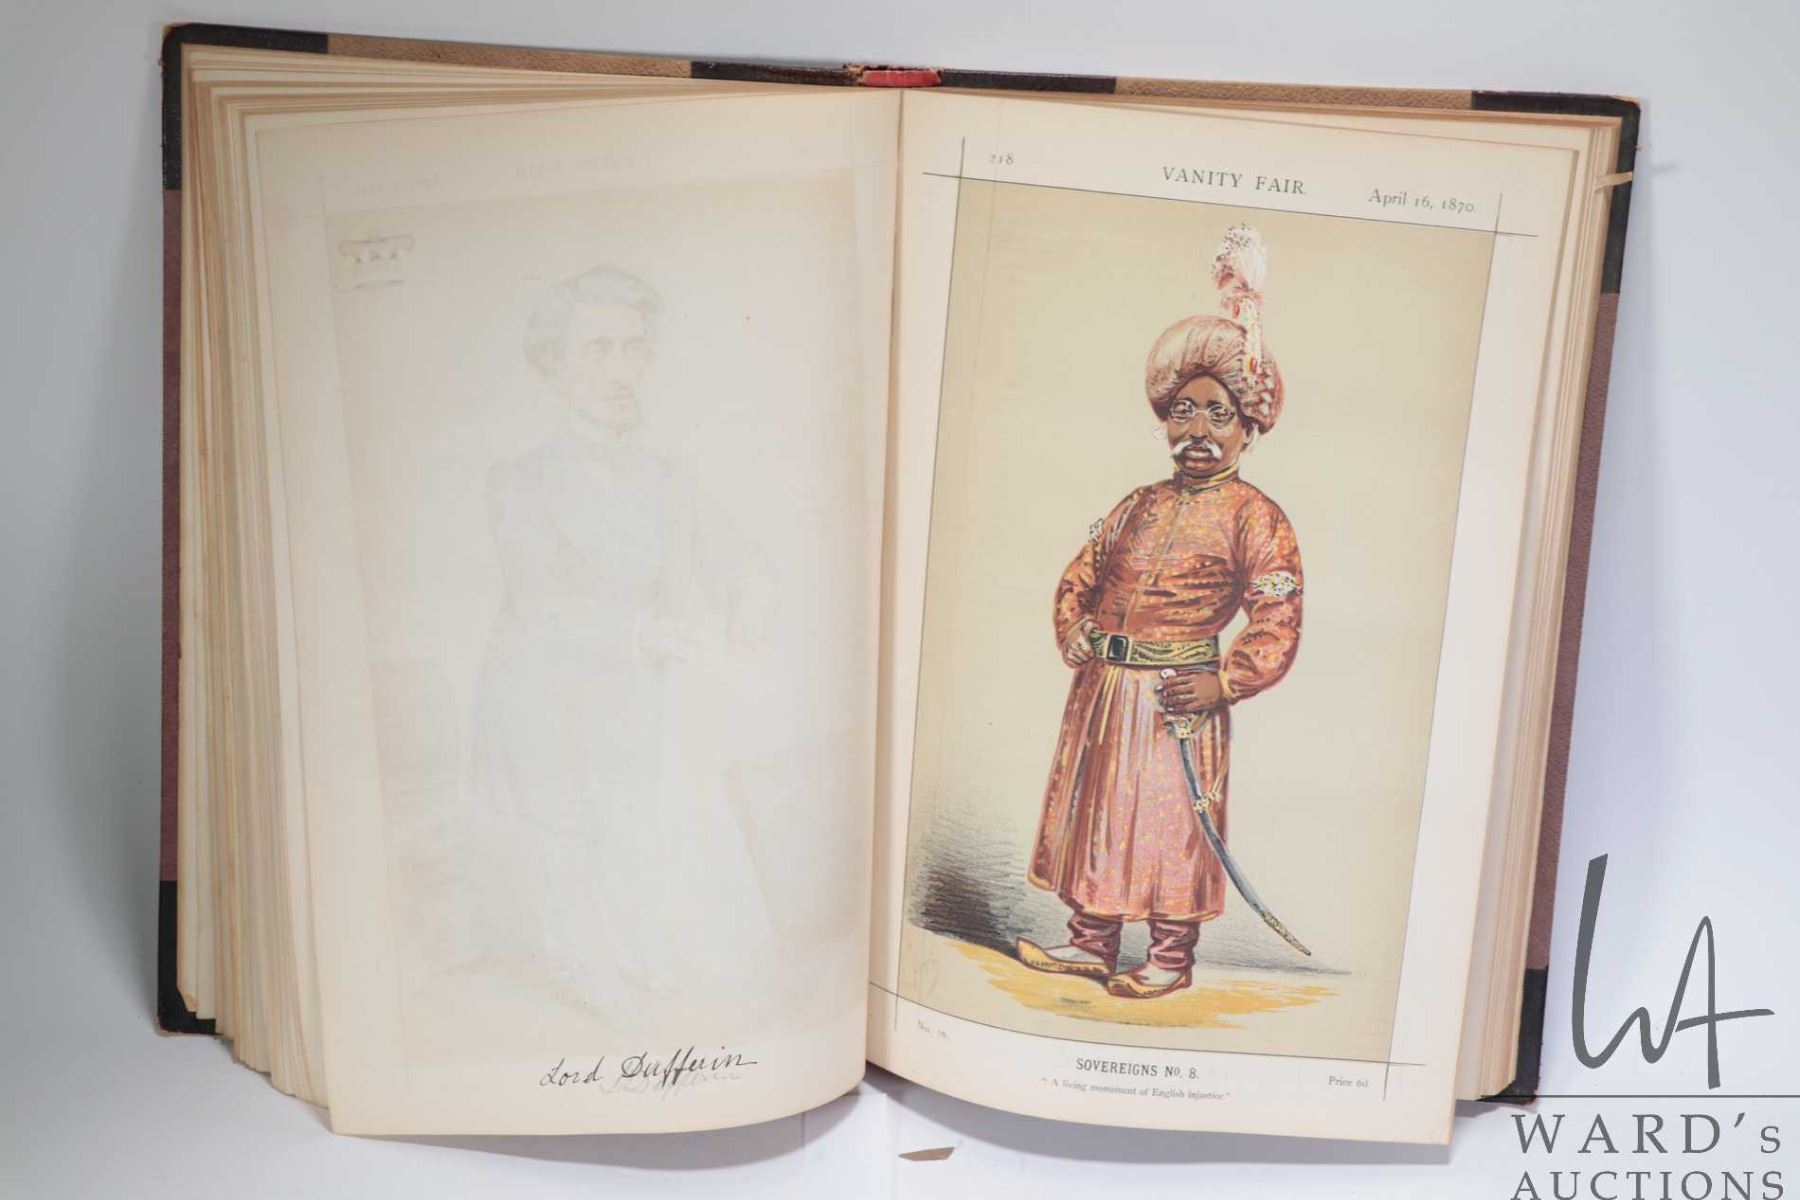 Lord Dufferin
218
VANITY FAIR.
April 16, 1870.
No. 76.
SOVEREIGNS No. 8.
"A living monument of English injustice."
Price 6d.
WA
WARD's
AUCTIONS